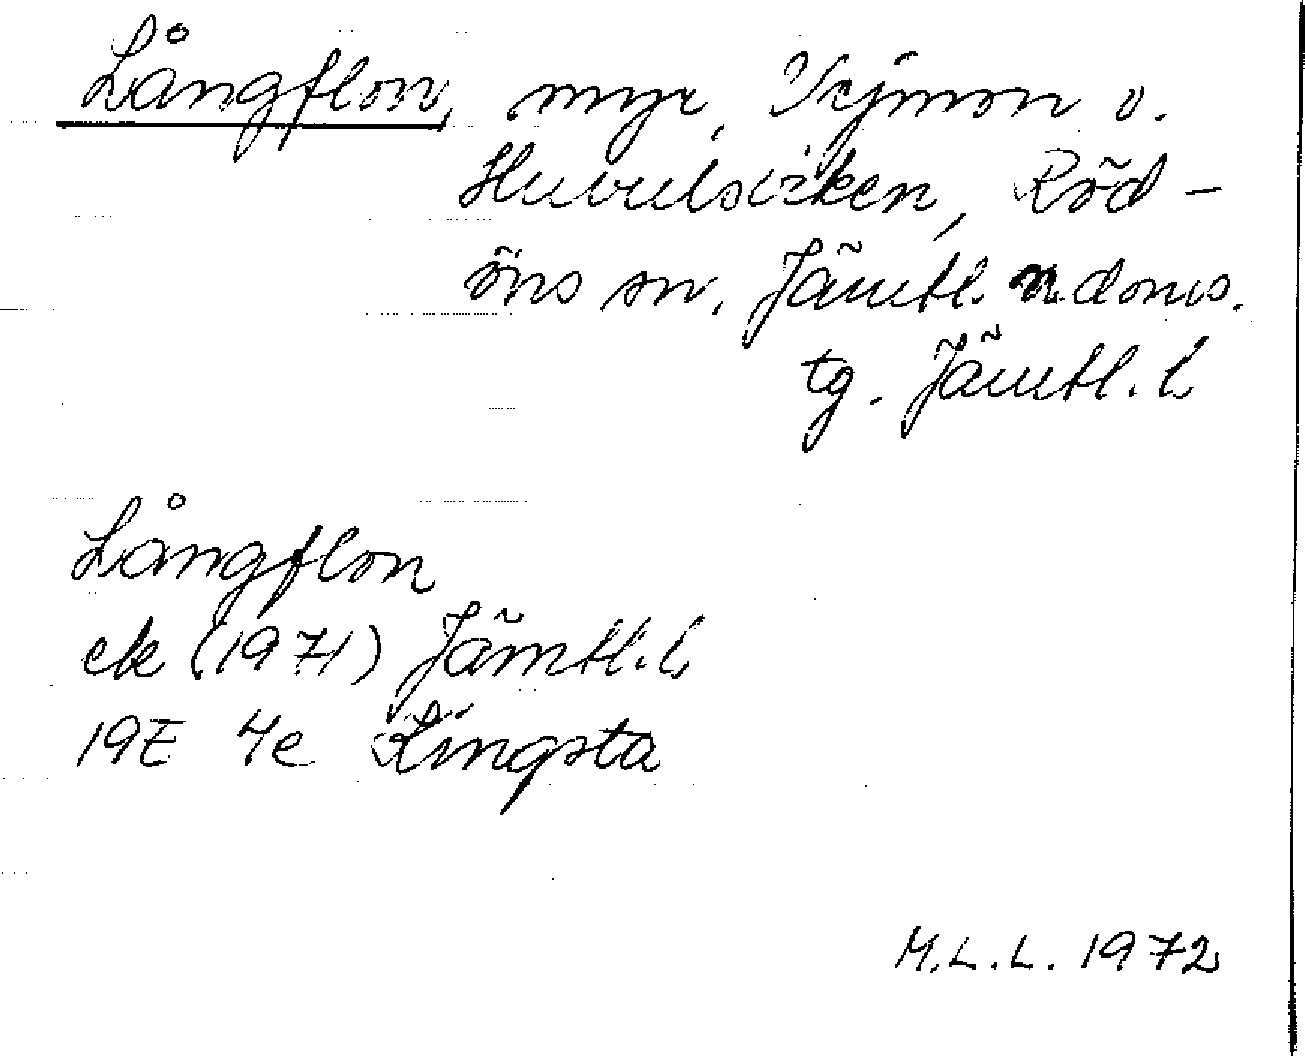 Långflon, myr, Vejmon o.
Huvulsviken, Röd-
öns sn, Jämtl. n doms.
tg. Jämtl. l
Långflon
ek (1971) Jämtl. l
19E 4e Kingsta
M.L.L. 1972